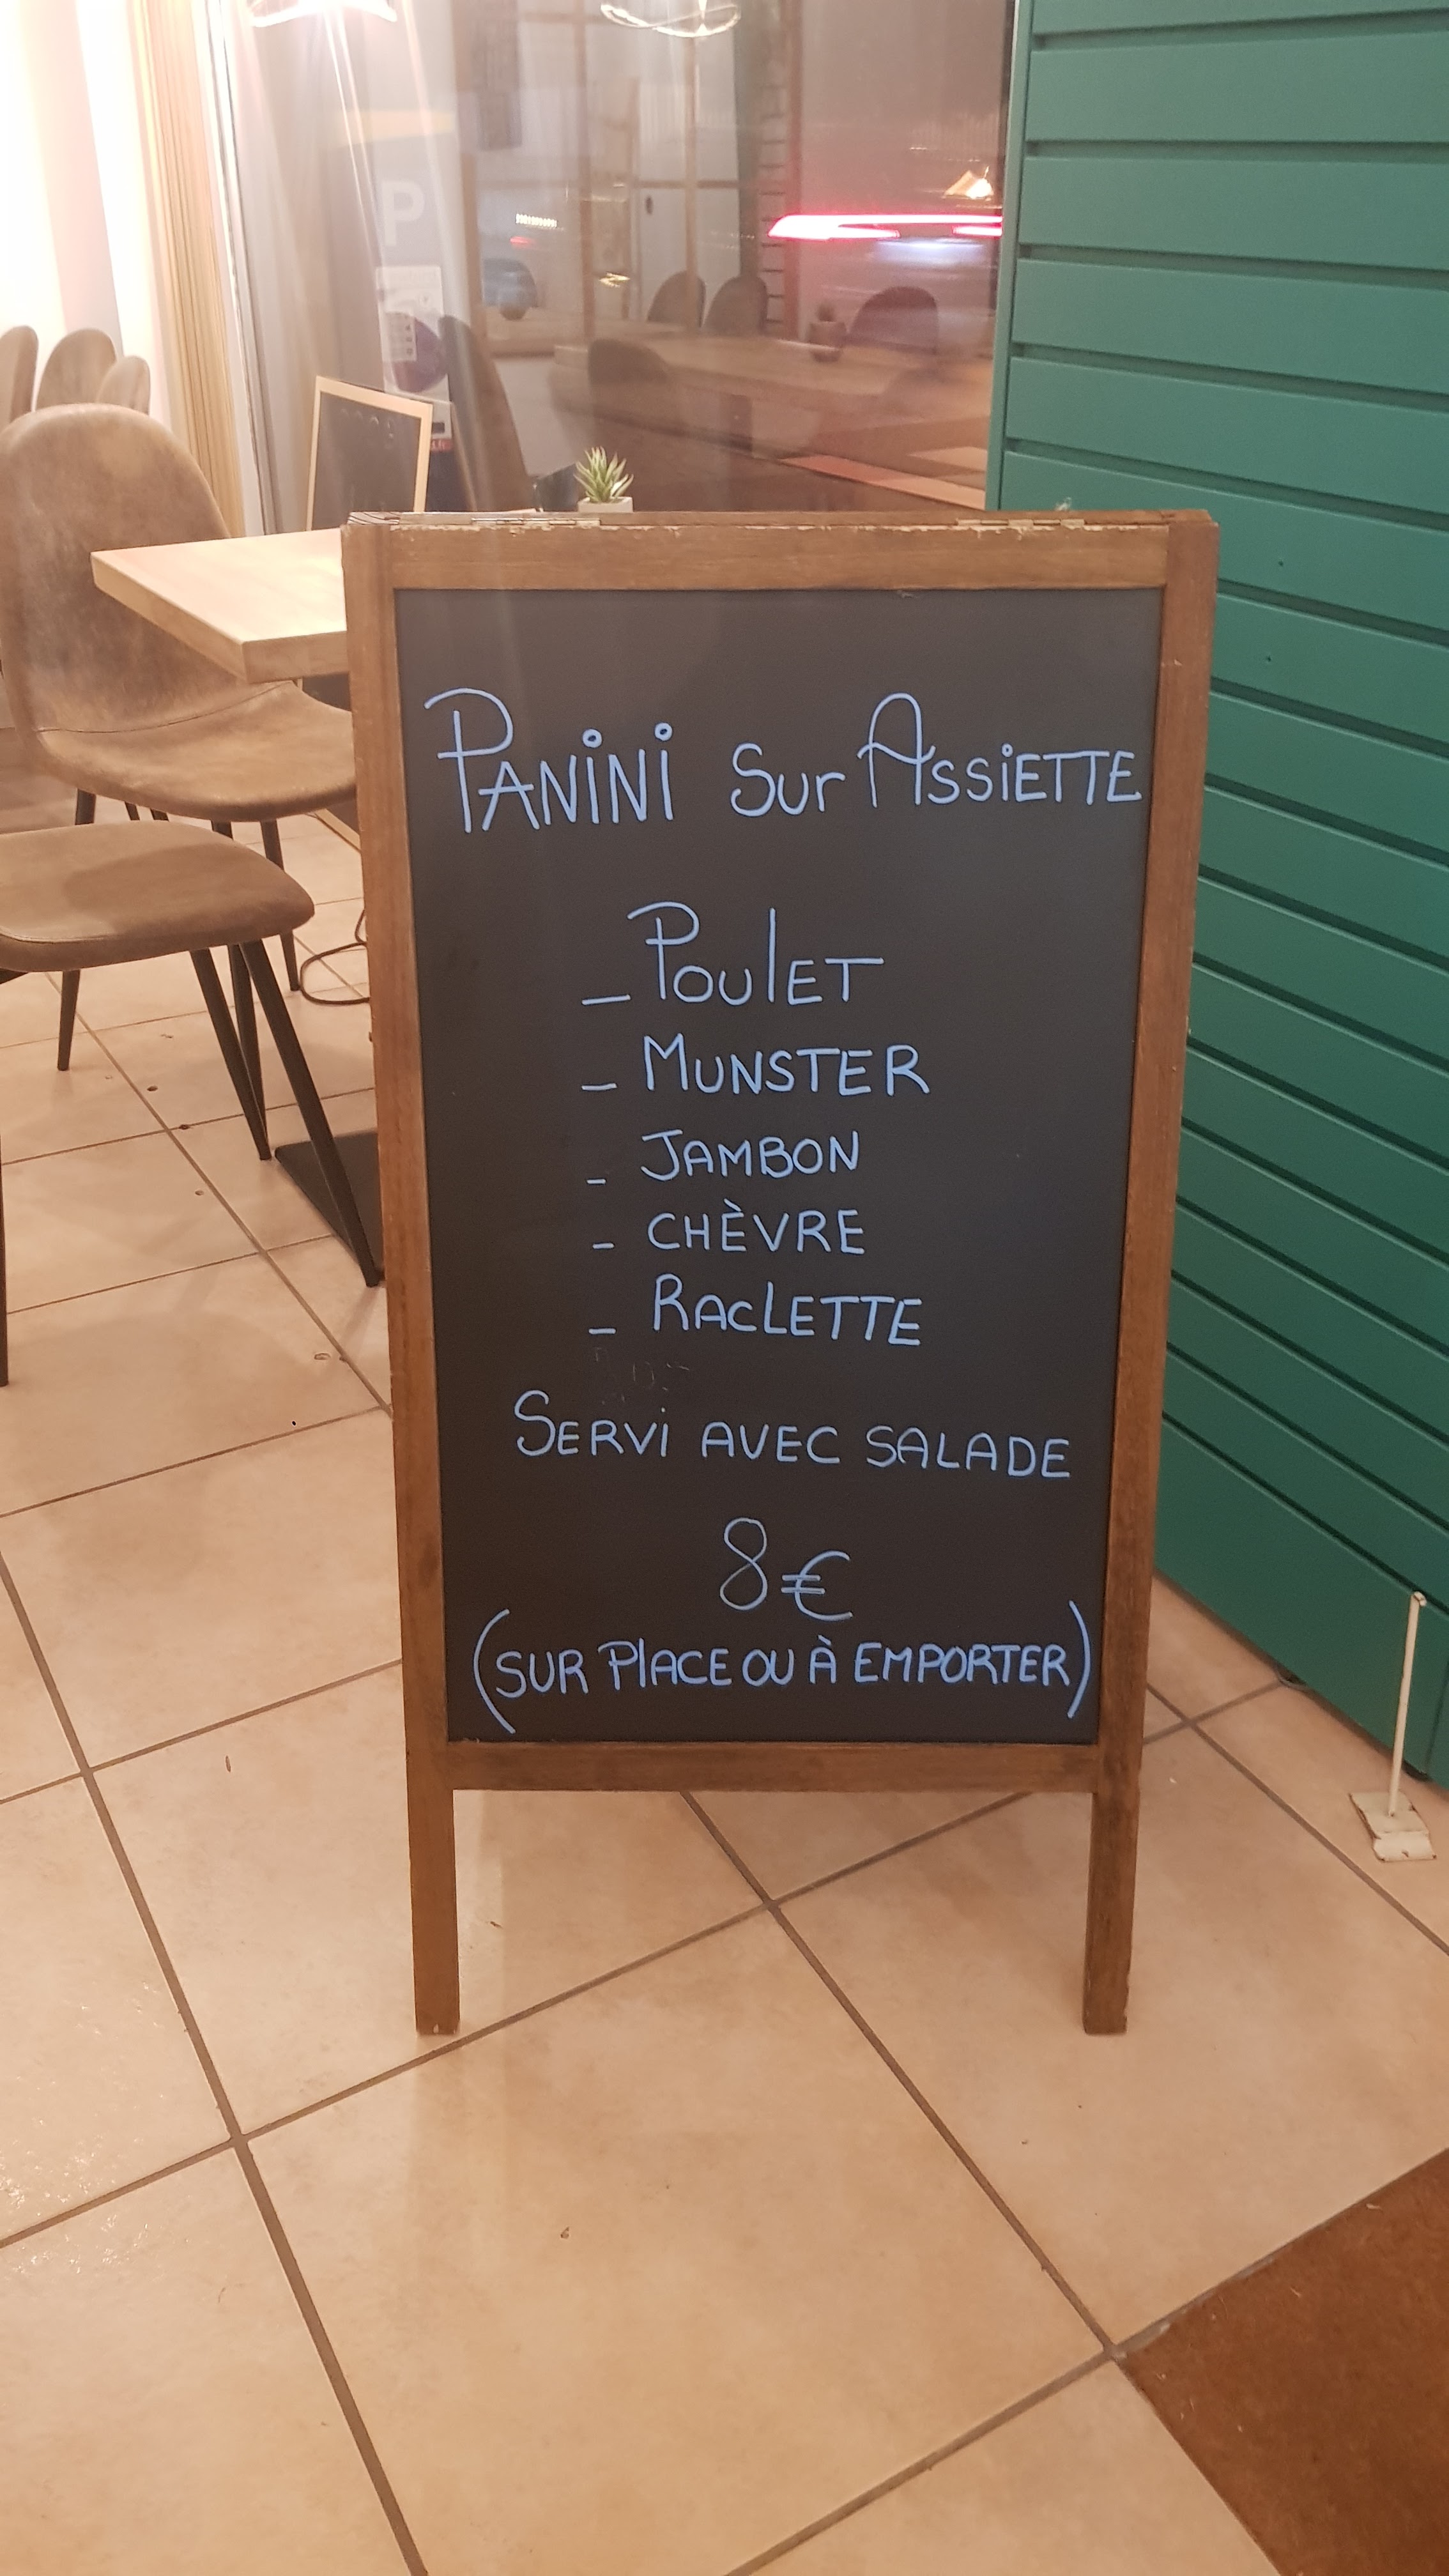 P
PANiNi Sur ASSiETTE
_ PoulET
_ MUNSTER
_ JAMBON
- CHÈVRE
_ RACLETTE
SERVi AVEC SALADE
8€
(SUR PlACE OU À EMPORTER)